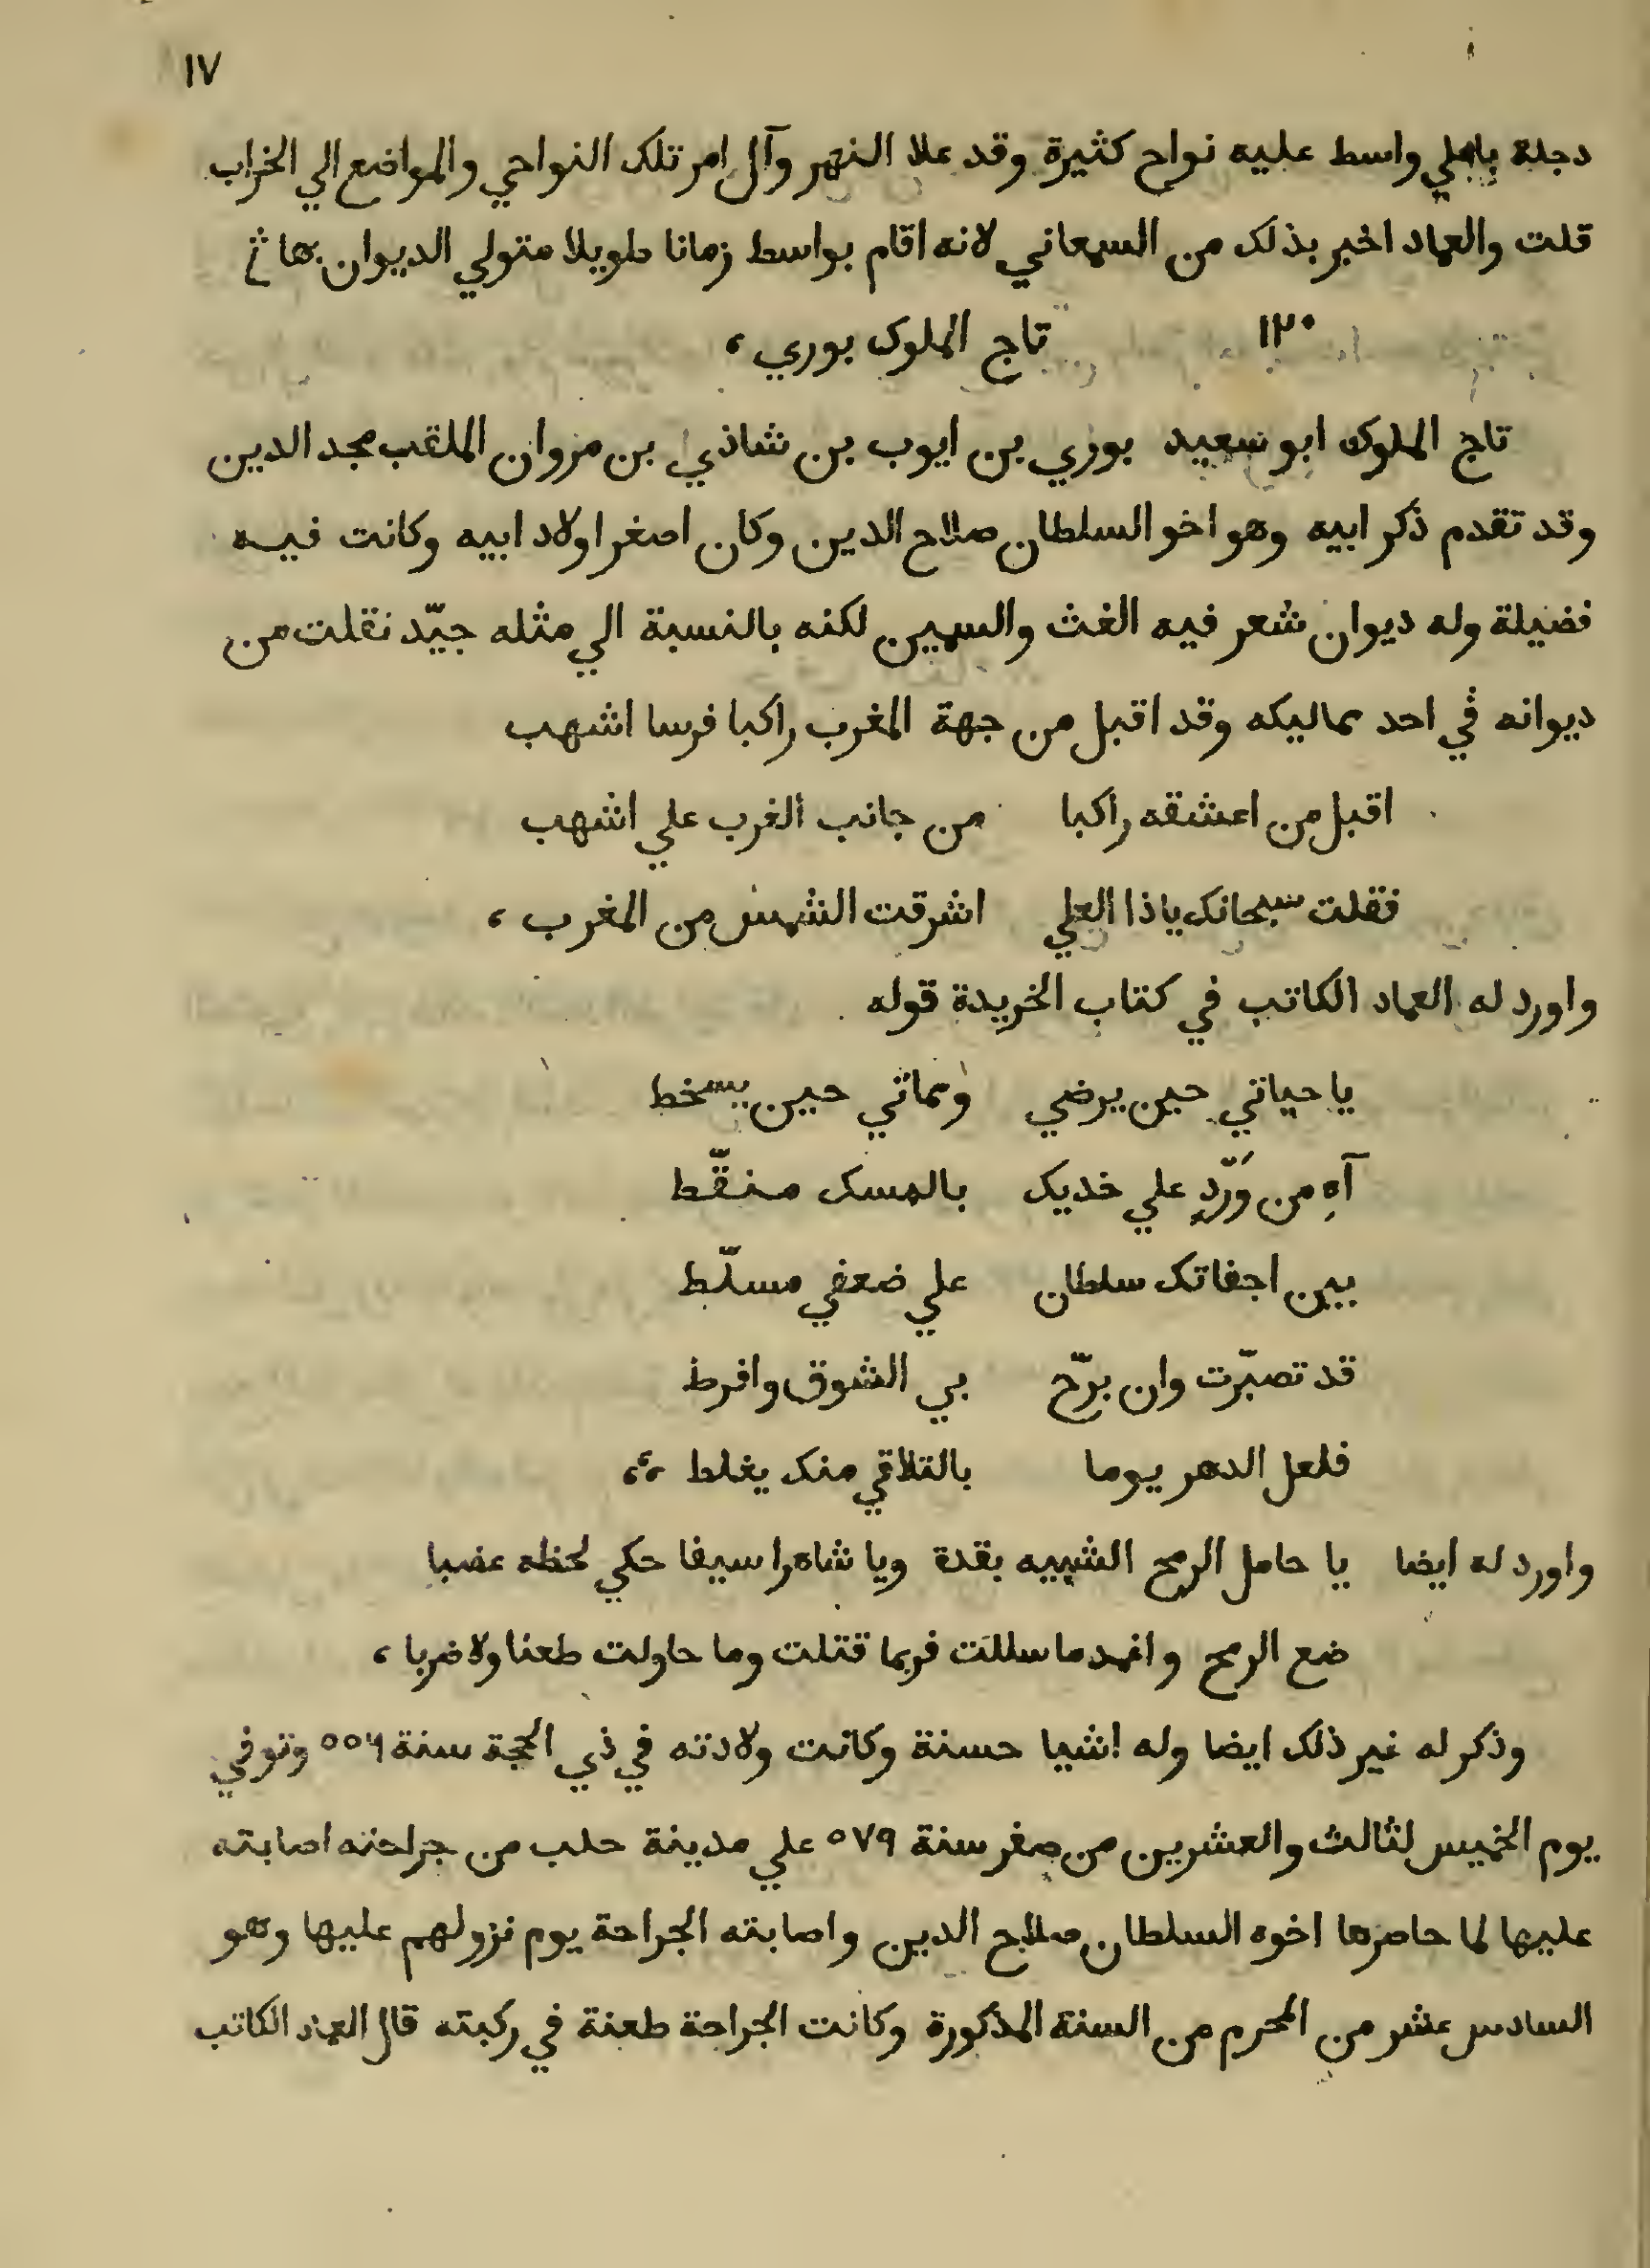 ١٧
دجلة باعلي واسط عليه نواح كثيرة وقد علا النهر وآل امر تلك النواحي والمواضع الي الخراب
قلت والعماد اخبر بذلك من السمعاني لانه اقام بواسط زمانا طويلا متولي الديوان بها
١٢٠ تاج الملوك بوري ،
تاج الملوك ابو سعيد بوري بن ايوب بن شاذي بن مروان الملقب مجد الدين
وقد تقدم ذكر ابيه وهو اخو السلطان صلاح الدين وكان اصغر اولاد ابيه وكانت فيه
فضيلة وله ديوان شعر فيه الغث والسمين لكنه بالنسبة الي مثله جيّد نقلت من
ديوانه في احد مماليكه وقد اقبل من جهة المغرب راكبا فرسا اشهب
اقبل من اعشقه راكبا من جانب الغرب علي اشهب
فقلت سبحانك ياذا العلي اشرقت الشمس من المغرب ،
واورد له العماد الكاتب في كتاب الخريدة قوله
يا حياتي حين يرضي ومماتي حين يسخط
آهِ من وَرّدٍ علي خديك بالمسك منقّط
بين اجفاتك سلطان علي ضعفي مسلّط
قد تصبّرت وان برّح بي الشوق وافرط
فلعل الدهر يوما بالتلاقي منك يغلط ،،،
واورد له ايضا يا حامل الرمح الشبيه بقدة ويا شاهرا سيفا حكي لحظه عضبا
ضع الرمح واغمد ما سللت فربما قتلت وما حاولت طعنا ولا ضربا ،
وذكر له غير ذلك ايضا وله اشيا حسنة وكانت ولادته في ذي الحجة سنة ٥٥٦ وتوفي
يوم الخميس لثالث والعشرين من صفر سنة ٥٧٩ علي مدينة حلب من جراحته اصابته
عليها لما حاصرها اخوه السلطان صلاح الدين واصابته الجراحة يوم نزولهم عليها وهو
السادس عشر من المحرم من السنة المذكورة وكانت الجراحة طعنة في ركبته قال العماد الكاتب